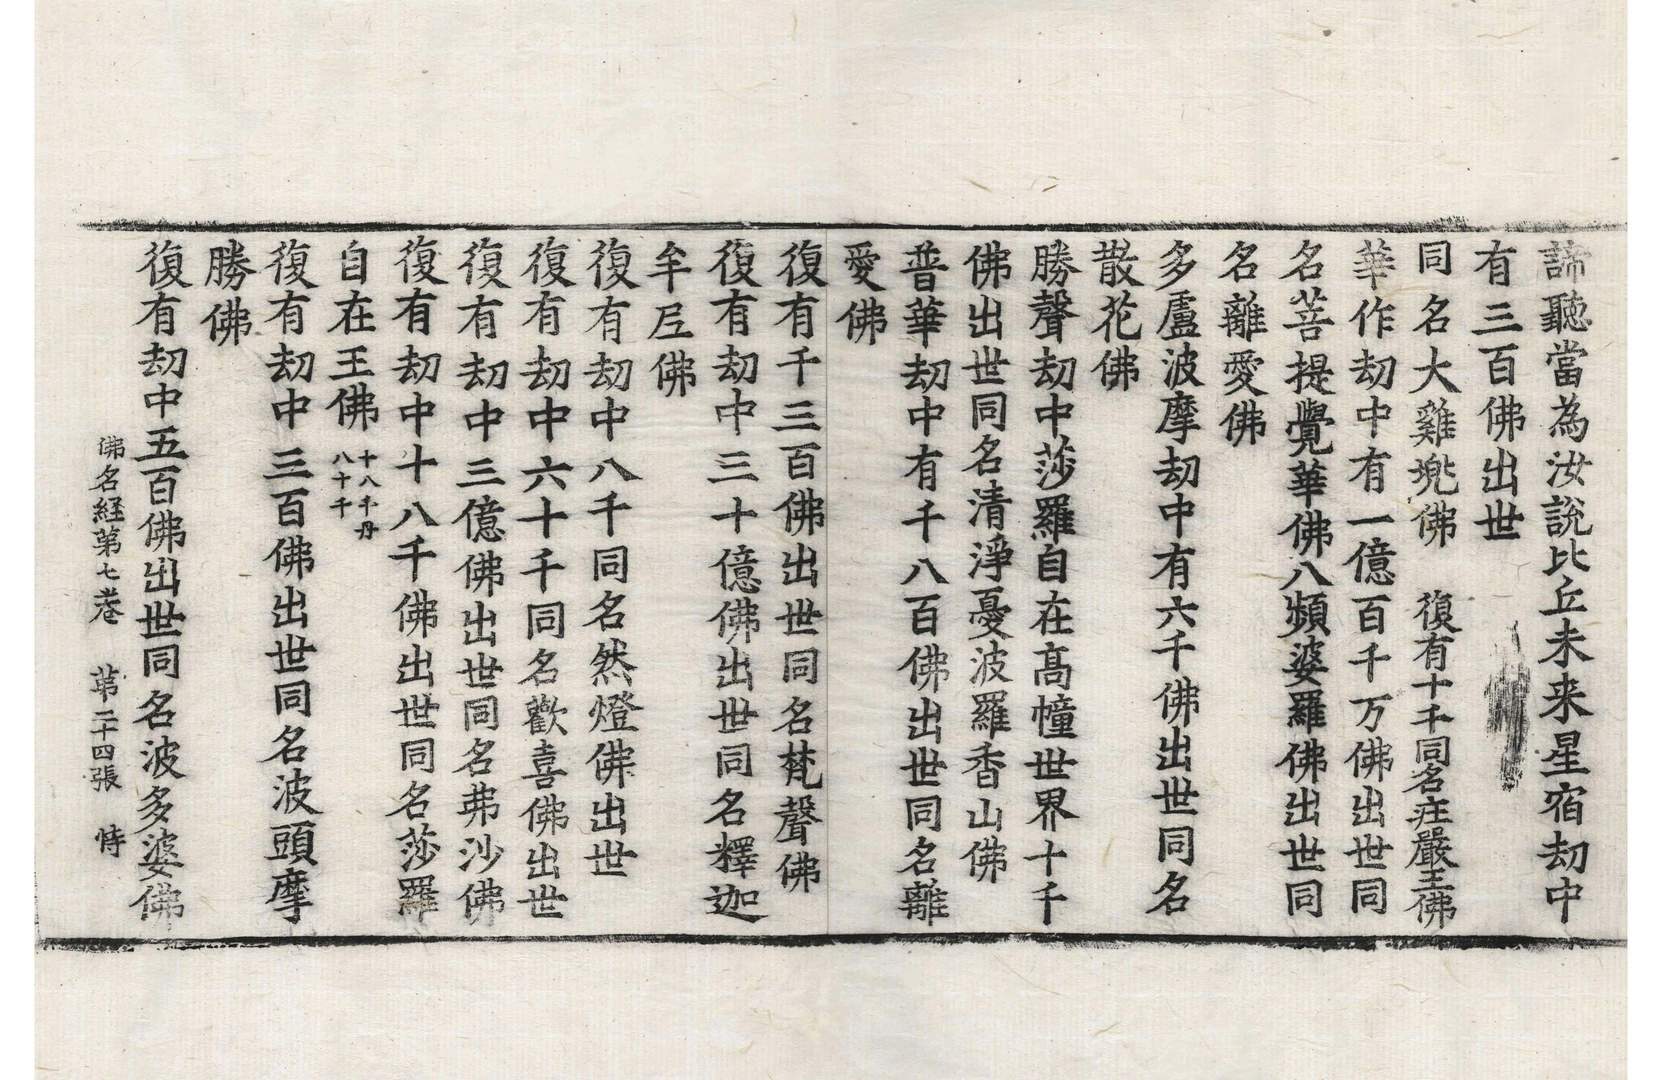 諦聽當為汝說比丘未来星宿劫中
有三百佛出世
同名大雞兠佛　復有十千同名莊嚴王佛
華作劫中有一億百千万佛出世同
名菩提覺華佛八頻婆羅佛出世同
名離愛佛
多盧波摩劫中有六千佛出世同名
散花佛
勝聲劫中莎羅自在高幢世界十千
佛出世同名清淨憂波羅香山佛
普華劫中有千八百佛出世同名離
愛佛
復有千三百佛出世同名梵聲佛
復有劫中三十億佛出世同名釋迦
牟尼佛
復有劫中八千同名然燈佛出世
復有劫中六十千同名歡喜佛出世
復有劫中三億佛出世同名弗沙佛
復有劫中十八千佛出世同名莎羅
自在王佛 十八千丹八十千
復有劫中三百佛出世同名波頭摩
勝佛
復有劫中五百佛出世同名波多婆佛
佛名經第七卷　第二十四張　恃